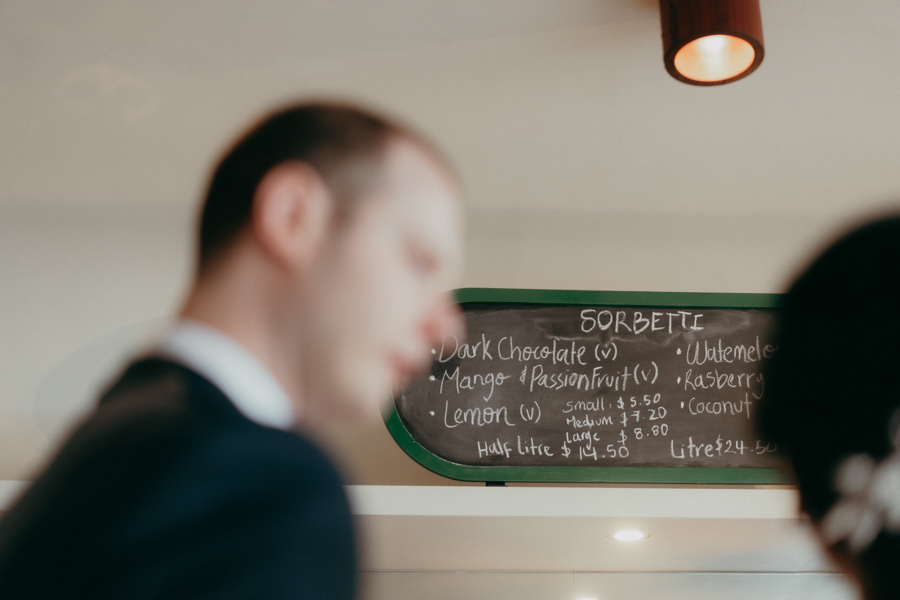 SORBETTI
• Dark Chocolate (v)
• Mango & Passionfruit (v)
• Lemon (v)
• Watermelo
• Rasberry
• Coconut
Small : $ 5.50
Medium $ 7.20
Large $ 8.80
Half litre $ 14.50
Litre $24.50